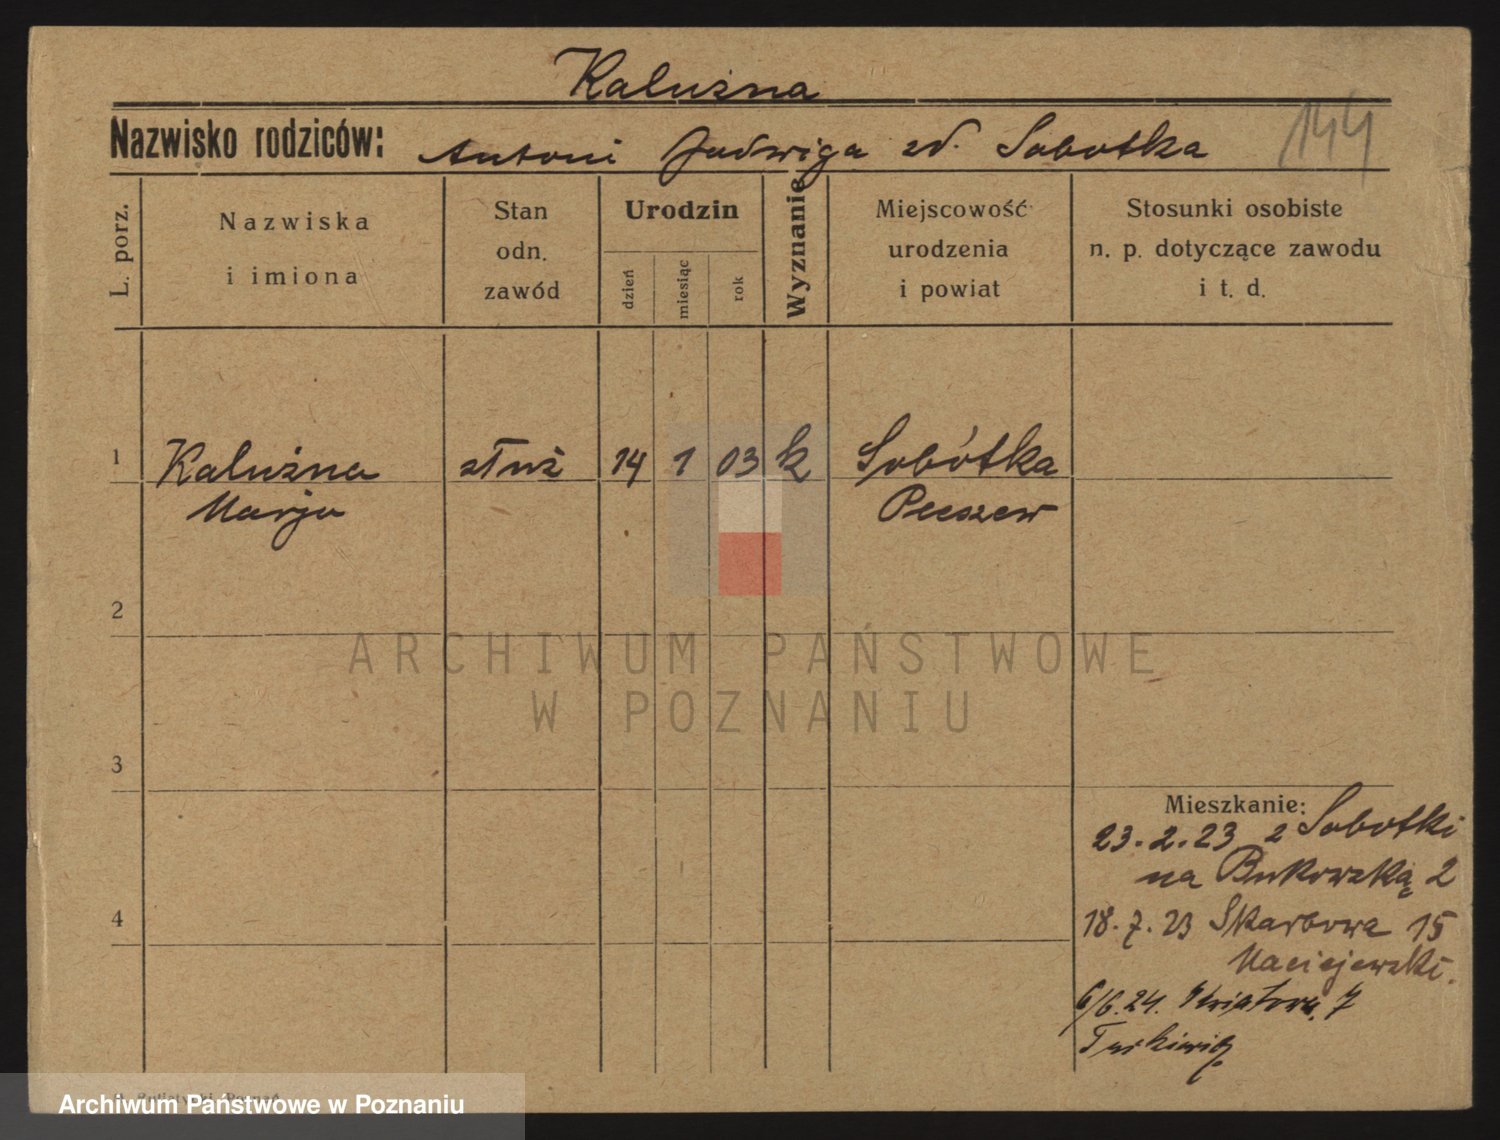 Kalużna
Nazwisko rodziców: Antoni Jadwiga zd. Sobotka
144
L. porz.
Nazwiska
i imiona
Stan
odn.
zawód
Urodzin
dzień
miesiąc
rok
Wyznanie
Miejscowość
urodzenia
i powiat
Stosunki osobiste
n. p. dotyczące zawodu
i t. d.
1 Kalużna służ 14 1 03 k Sobótka
Marja Pleszew
2
ARCHIWUM PAŃSTWOWE
W POZNANIU
3
Mieszkanie:
23.2.23 z Sobotki
na Bukowską 2
4
18.7.23 Skarbowa 15
Maciejewski.
6/6.24. 7
Archiwum Państwowe w Poznaniu